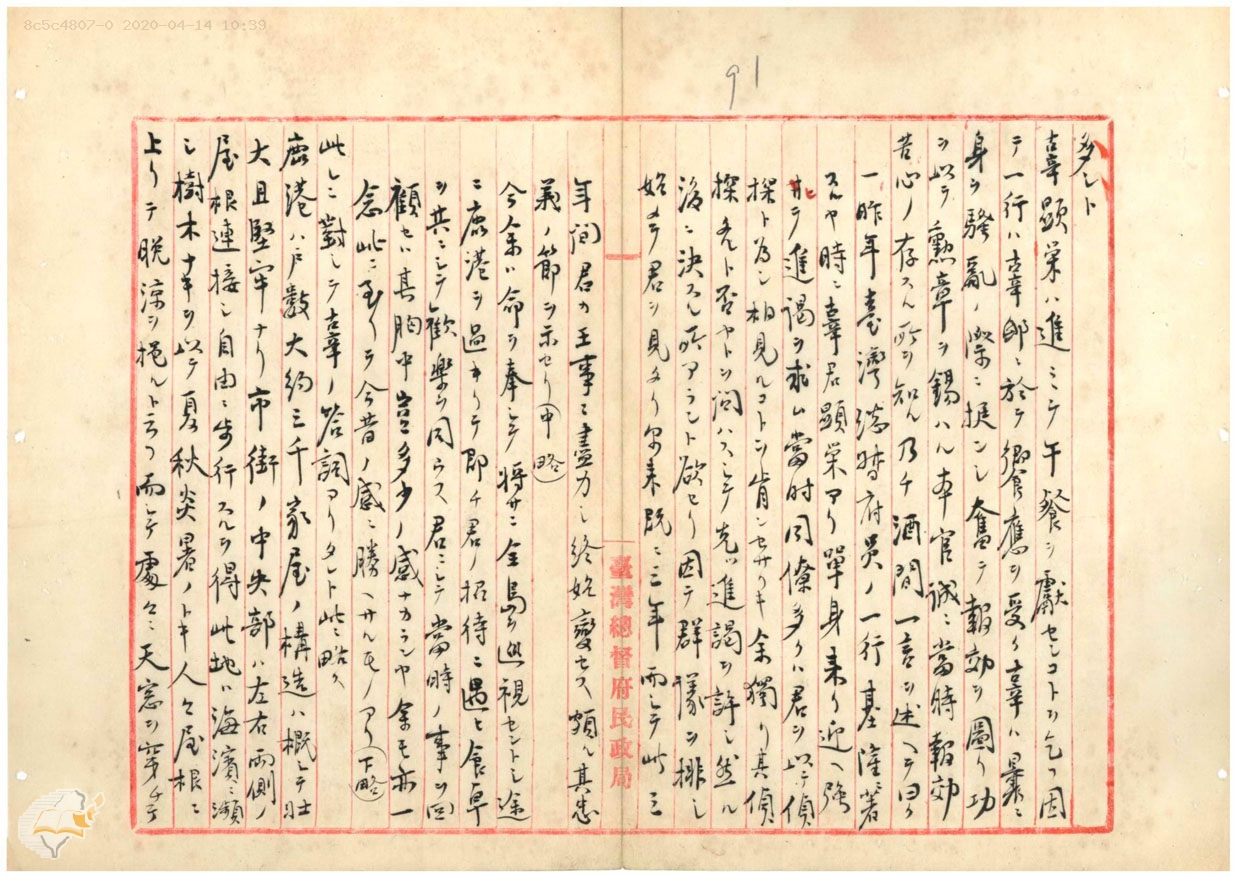 8c5c4807-0 2020-04-14 10:39
91
多シト
辜顕栄ハ進ミテ午餐ヲ献センコトヲ乞フ因
テ一行ハ辜邸ニ於テ饗應ヲ受ク辜ハ曩ニ
身ヲ騒亂ノ際ニ挺シ奮テ報効ヲ圖リ功
ヲ以テ勲章ヲ錫ハル本官誠ニ當時報効
苦心ノ存スル所ヲ知ル乃チ酒間一言ヲ述ヘテ曰ク
一昨年臺灣総督府員ノ一行基隆ニ著
スルヤ時ニ辜君顕栄アリ單身来リ迎ヘ強
ヒテ進謁ヲ求ム當時同僚多クハ君ヲ以テ偵
探ト為シ相見ルコトヲ肯ンセサリキ余獨リ其偵
探タルト否ヤトヲ問ハスシテ先ツ進謁ヲ許シ然ル
後ニ決スル所アラント欲セリ因テ群議ヲ排シ
始メテ君ヲ見タリ尓来既ニ三年而シテ此三
年間君カ王事ニ盡力シ終始變セス頗ル其忠
義ノ節ヲ示セリ(中略)
今余ハ命ヲ奉シテ将サニ全島ヲ巡視セントシ途
ニ鹿港ヲ過キリテ即チ君ノ招待ニ遇ヒ食卓
ヲ共ニシテ歓樂ヲ同フス君ニシテ當時ノ事ヲ回
顧セハ其胸中豈多少ノ感ナカランヤ余モ亦一
念此ニ至リテ今昔ノ感ニ勝ヘサルモノアリ(下略)
此レニ對シテ辜ノ答詞アリタレト此ニ略ス
鹿港ハ戸數大約三千家屋ノ構造ハ概シテ壮
大且堅牢ナリ市街ノ中央部ハ左右両側ノ
屋根連接シ自由ニ歩行スルヲ得此地ハ海濱ニ瀕
シ樹木ナキヲ以テ夏秋炎暑ノトキ人々屋根ニ
上リテ晩涼ヲ挹ルト云フ而シテ處々ニ天窓ヲ穿チテ
臺灣總督府民政局